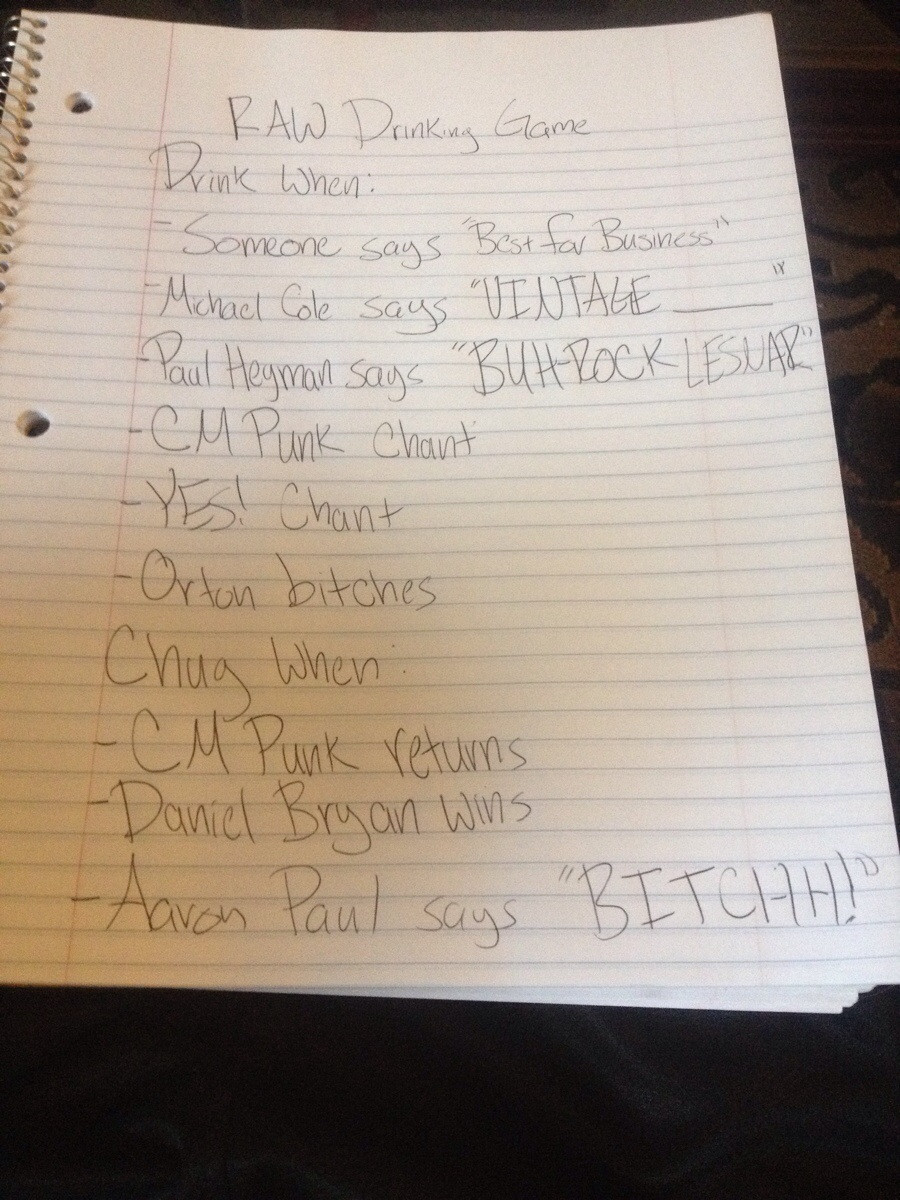 RAW Drinking Game
Drink When:
- Someone says "Best for Business"
- Michael Cole says "VINTAGE ______"
- Paul Heyman says "BUH-ROCK LESNAR"
- CM Punk Chant
- YES! Chant
- Orton bitches
Chug When:
- CM Punk returns
- Daniel Bryan wins
- Aaron Paul says "BITCHH!"